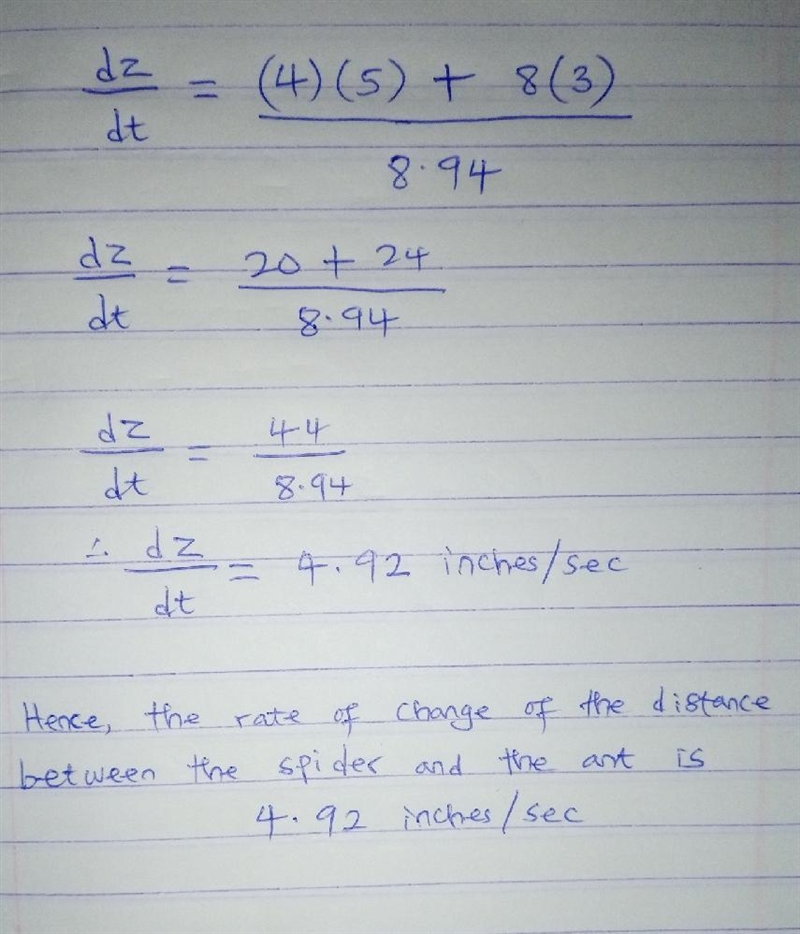 dz/dt = (4)(5) + 8(3) / 8.94
dz/dt = 20 + 24 / 8.94
dz/dt = 44 / 8.94
∴ dz/dt = 4.92 inches/sec
Hence, the rate of change of the distance
between the spider and the ant is
4.92 inches/sec